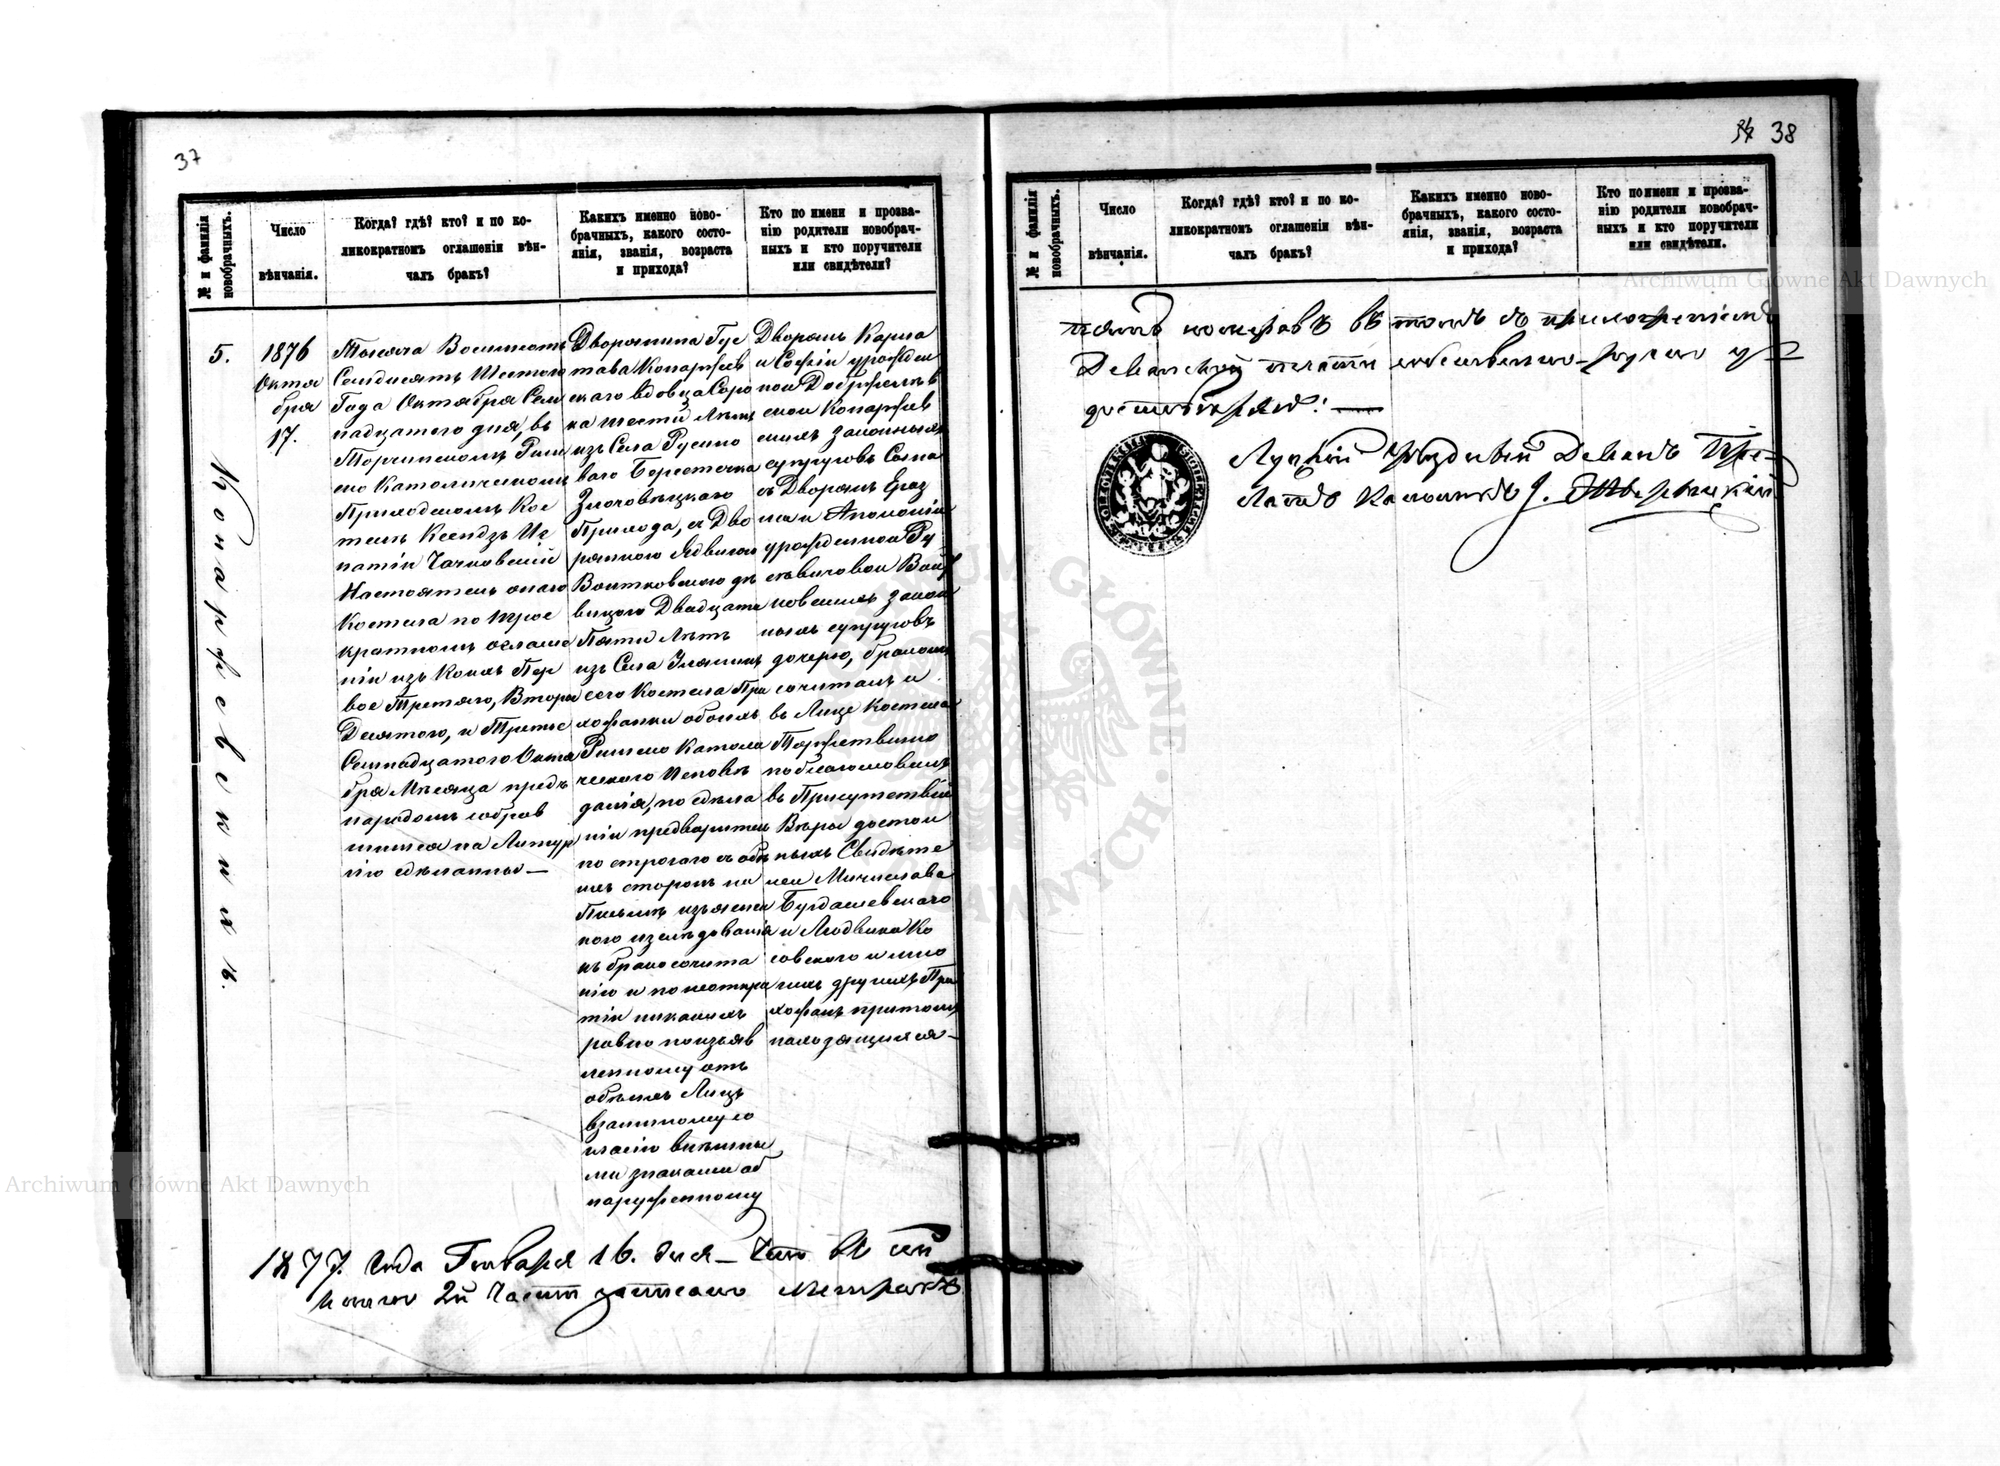 37
№ и фамиліи новобрачныхъ.
Число вѣнчанія.
Когда? гдѣ? кто? и по ко-
ликократномъ оглашеніи вѣн-
чалъ бракъ?
Какихъ именно ново-
брачныхъ, какого состо-
янія, званія, возраста
и прихода?
Кто по имени и прозва-
нію родители новобрач-
ныхъ и кто поручители
или свидѣтели?
5.
Конаржевскихъ.
1876
Октя
бря
17.
Тысяча Восемьсотъ
Семдисятъ Шестого
Года Октября Сем
надцатого дня, въ
Торчинскомъ Рим
ско Католическомъ
Приходскомъ Кос
телѣ Ксендзъ Иг
натій Чачковскій
Настоятель онаго
Костела по трое
кратномъ оглаше
ніи изъ Коихъ Пер
вое Третяго, Второе
Десятого, и Третье
Семнадцатого Октя
бря Мѣсяца предъ
народомъ собрав
шимся на Литур
гію сдѣланные—
Дворянина Гус
тава Конаржев
скаго вдовца Соро
ка шести лѣтъ
изъ Села Русино
ваго Берестечка
Злочовѣцкаго
Прихода, съ Дво
рянкою Ядвигою
Воитковскою дѣ
вицою Двадцати
Пяти Лѣтъ
изъ Села
сего Костела При
хожанки обоихъ
Римско Католи
ческого Исповѣ
данія, по сдѣла
ніи предваритель
но строгаго съ обѣ
ихъ сторонъ на
Письмѣ изъяснен
ного изслѣдованія
къ бракосочета
нію и по неоткры
тіи никакихъ
равно по изъяв
ленному отъ
обѣихъ Лицъ
взаимному со
гласію внѣшны
ми знаками об
наруженному
Дворянъ Карла
и Софіи урожден
ной Добржелев
ской Конаржев
скихъ законныхъ
супруговъ Сына
съ Дворянъ Ераз
ма и Аполоніи
урожденной Ру
Воит
ковскихъ закон
ныхъ супруговъ
дочерю, бракомъ
сочеталъ и
въ Лице Костела
Торжественно
поблагословилъ
въ Присутствіи
Вѣры достой
ныхъ Свидѣте
лей Мичислава
Богдашевскаго
и Людвика Ко
совского и мно
гихъ другихъ При
хожанъ притомъ
находящихся—
1877. Года Генваря 16. дня— Что въ сей
книгѣ 2й части записано метрикъ
38
№ и фамиліи новобрачныхъ.
Число вѣнчанія.
Когда? гдѣ? кто? и по ко-
ликократномъ оглашеніи вѣн-
чалъ бракъ?
Какихъ именно ново-
брачныхъ, какого состо-
янія, званія, возраста
и прихода?
Кто по имени и прозва-
нію родители новобрач-
ныхъ и кто поручители
или свидѣтели.
пять номеровъ въ томъ съ приложеніемъ
Деканской печати собственно-ручно у-
достовѣряю:—
Луцкій Уѣздный Деканъ Пре-
латъ Каноникъ
Archiwum Główne Akt Dawnych
Archiwum Główne Akt Dawnych